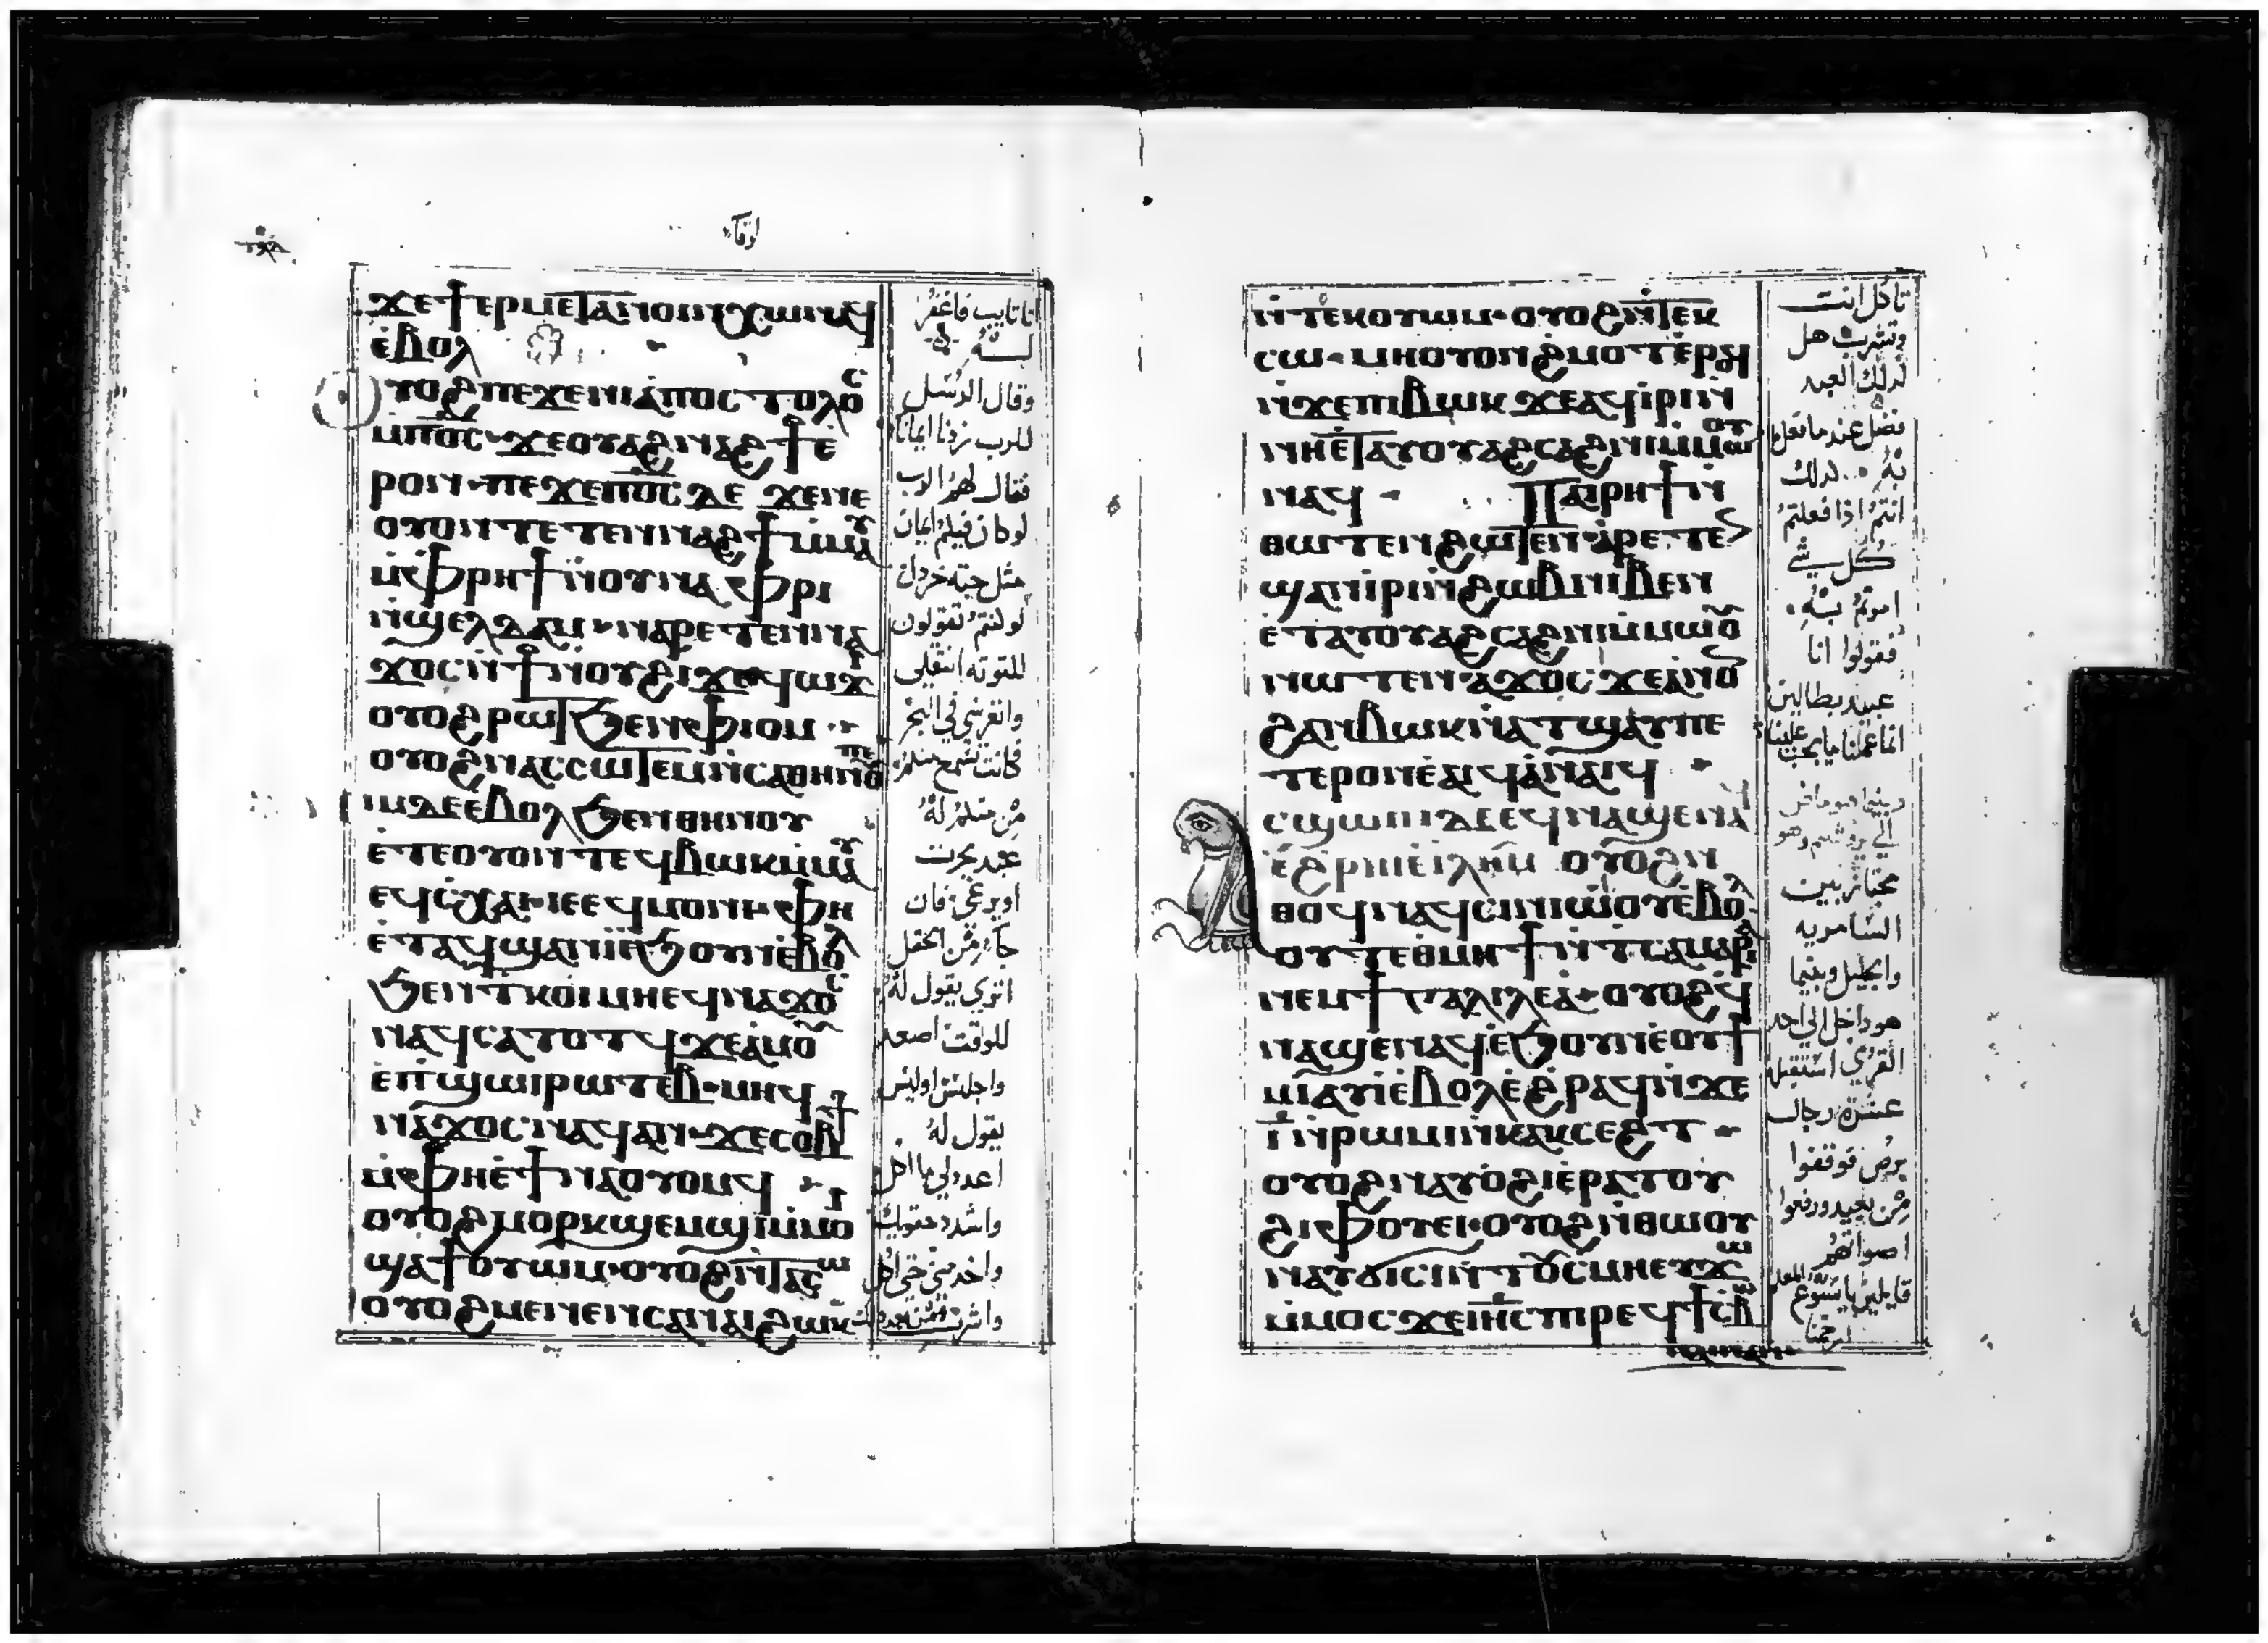 لوقا
ϫⲉϯⲉⲣⲙⲉⲧⲁⲛⲟⲓⲛ ⲭⲱ ⲛⲁϥ
ⲉ̀ⲃⲟⲗ
ⲩⲟϩ ⲡⲉϫⲉ ⲛⲓⲁ̀ⲡⲟⲥⲧⲟⲗⲟⲥ
ⲙ̀ⲡⲟ̅ⲥ̅ ϫⲉ ⲟⲩⲁϩⲛⲁϩϯ ⲉ̀
ⲣⲟⲛ· ⲡⲉϫⲉ ⲡⲟ̅ⲥ̅ ⲇⲉ ϫⲉ ⲛⲉ
ⲟⲩⲟⲛⲧⲉⲧⲉⲛ ⲛⲁϩϯ ⲙ̀ⲙⲁⲩ
ⲙ̀ⲫⲣⲏϯ ⲛ̀ⲟⲩⲛⲁⲫⲣⲓ
ⲛ̀ϣⲉⲗⲧⲁⲙ· ⲛⲁⲣⲉⲧⲉⲛⲛⲁ
ϫⲟⲥ ⲛ̀ϯⲛⲟⲩϩⲓ ϫⲉ ϥⲱϫⲓ
ⲟⲩⲟϩ ⲣⲱⲧ ϧⲉⲛ ⲫⲓⲟⲙ
ⲟⲩⲟϩ ⲛⲁⲥⲥⲱⲧⲉⲙ ⲛ̀ⲥⲁⲑⲏⲛⲟⲩ ⲡⲉ
ⲛⲓⲙ ⲇⲉ ⲉ̀ⲃⲟⲗ ϧⲉⲛ ⲑⲏⲛⲟⲩ
ⲉ̀ⲧⲉ ⲟⲩⲟⲛⲧⲉϥ ⲃⲱⲕ ⲙ̀ⲙⲁⲩ
ⲉϥⲥⲭⲁⲓ ⲓⲉ ⲉϥⲙⲟⲛⲓ· ⲫⲏ
ⲉ̀ⲧⲁϥϣⲁⲛⲓ̀ ⲉ̀ϧⲟⲩⲛ ⲉ̀ⲃⲟⲗ
ϧⲉⲛ ⲧⲕⲟⲓ ⲙⲏ ⲉϥⲛⲁϫⲟⲥ
ⲛⲁϥ ⲥⲁⲧⲟⲧϥ ϫⲉ ⲁ̀ⲙⲟⲩ
ⲉ̀ⲡϣⲱⲓ ⲣⲱⲧⲉⲃ· ⲙⲏ ϥ
ⲛⲁ̀ϫⲟⲥ ⲛⲁϥ ⲁⲛ· ϫⲉ ⲥⲟⲃϯ
ⲙ̀ⲫⲏ ⲉ̀ϯⲛⲁⲟⲩⲟⲙϥ
ⲟⲩⲟϩ ⲙⲟⲣⲕ ϣⲉⲙϣⲓ ⲙ̀ⲙⲟⲓ
ϣⲁϯⲟⲩⲱⲙ· ⲟⲩⲟϩ ⲛ̀ⲧⲁⲥⲱ
ⲟⲩⲟϩ ⲙⲉⲛⲉⲛⲥⲁ ⲛⲁⲓ ϩⲱⲕ
انا تايب فاغفر
له
وقال الرسل
للرب زدنا ايمانا
فقال لهم الرب
لو كان فيكم ايمان
مثل حبة خردل
لو كنتم تقولون
للتوته انتقلى
وانغرسي في البحر
فكانت تسمع منكم
من منكم له
عبد يحرث
او يرعى فان
جاء من الحقل
اترى يقول له
للوقت اصعد
واجلس اوليس
يقول له
اعدد لي ما اكل
واشدد حقويك
واخدمني حتى اكل
ⲛ̀ⲧⲉⲕⲟⲩⲱⲙ· ⲟⲩⲟϩ ⲛ̀ⲧⲉⲕ
ⲥⲱ· ⲙⲏ ⲟⲩⲟⲛ ϩⲙⲟⲧ ⲉ̀ⲣϣ
ⲛ̀ϫⲉ ⲡⲓⲃⲱⲕ ϫⲉ ⲁϥⲓ̀ⲣⲓ ⲛ̀
ⲛⲏ ⲉ̀ⲧⲁⲩⲟⲩⲁϩⲥⲁϩⲛⲓ ⲙ̀ⲙⲱⲟⲩ
ⲛⲁϥ· Ⲡⲁⲓⲣⲏϯ ⲛ̀
ⲑⲱⲧⲉⲛ ϩⲱⲧⲉⲛ· ⲁⲣⲉⲧⲉ
ϣⲁⲛⲓ̀ⲣⲓ ⲛ̀ϩⲱⲃ ⲛⲓⲃⲉⲛ
ⲉ̀ⲧⲁⲩⲟⲩⲁϩⲥⲁϩⲛⲓ ⲙ̀ⲙⲱⲟⲩ
ⲛⲱⲧⲉⲛ· ⲁϫⲟⲥ ϫⲉ ⲁ̀ⲛⲟⲛ
ϩⲁⲛⲃⲱⲕ ⲛ̀ⲁⲧϣⲁⲩ ⲡⲉ
ⲧⲉⲣⲟⲛ ⲉ̀ⲁⲓϥ ⲁ̀ⲛⲁⲓϥ
ⲥϣⲱⲡⲓ ⲇⲉ ⲉϥⲛⲁϣⲉⲛⲁϥ
ⲉ̀ϩⲣⲏⲓ ⲉ̀ⲓⲗⲏⲙ ⲟⲩⲟϩ ⲛ̀
ⲑⲟϥ ⲛⲁϥⲥⲓⲛⲓⲱⲟⲩ ⲉ̀ⲃⲟⲗ
ⲟⲩⲧⲉ ⲑⲙⲏϯ ⲛ̀ⲧⲥⲁⲙⲁⲣⲓⲁ
ⲛⲉⲙ ϯⲅⲁⲗⲓⲗⲉⲁ· ⲟⲩⲟϩ ϥ
ⲛⲁϣⲉⲛⲁϥ ⲉ̀ϧⲟⲩⲛ ⲉ̀ⲟⲩϯ
ⲙⲓ ⲁⲩⲓ̀ ⲉ̀ⲃⲟⲗ ⲉ̀ϩⲣⲁϥ ⲛ̀ϫⲉ
ⲓ̅ ⲛ̀ⲣⲱⲙⲓ ⲛ̀ⲕⲁⲕⲥⲉϩⲧ
ⲟⲩⲟϩ ⲛⲁⲩⲟ̀ϩⲓ ⲉ̀ⲣⲁⲧⲟⲩ
ϩⲓ ⲫⲟⲩⲉⲓ· ⲟⲩⲟϩ ⲛ̀ⲑⲱⲟⲩ
ⲛⲁⲩϭⲓⲥⲓ ⲛ̀ⲧⲟⲩⲥⲙⲏ ⲉⲩϫⲱ
ⲙ̀ⲙⲟⲥ ϫⲉ ⲓⲏ̅ⲥ̅ ⲡⲓⲣⲉϥϯⲥⲃⲱ
ⲛⲁⲓ ⲛⲁⲛ
تاكل انت
وتشرب هل
لذلك العبد
فضل عندما فعل
لذلك
انتم اذا فعلتم
كل شي
امرتم به
فقولوا انا
عبيد بطالين
انما عملنا ما يجب علينا
وبينما هو ماض
الى يروشليم وهو
مجتاز بين
السامريه
والجليل وبينما
هو داخل الى احد
القرى استقبله
عشرة رجال
برص فوقفوا
من بعيد ورفعوا
اصواتهم
قايلين يا يسوع المعلم
ارحمنا